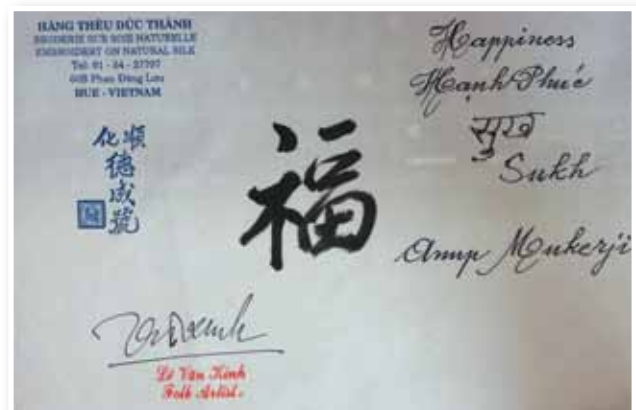 HÀNG THÊU ĐỨC THÀNH
BRODERIE SUR SOIE NATURELLE
EMBROIDERY ON NATURAL SILK
Phan Đăng Lưu
HUE - VIETNAM
順化
德成號
福
Happiness
Hạnh Phúc
सुख
Sukh
Anup Mukerji
Lê Văn Kinh
Folk Artist.